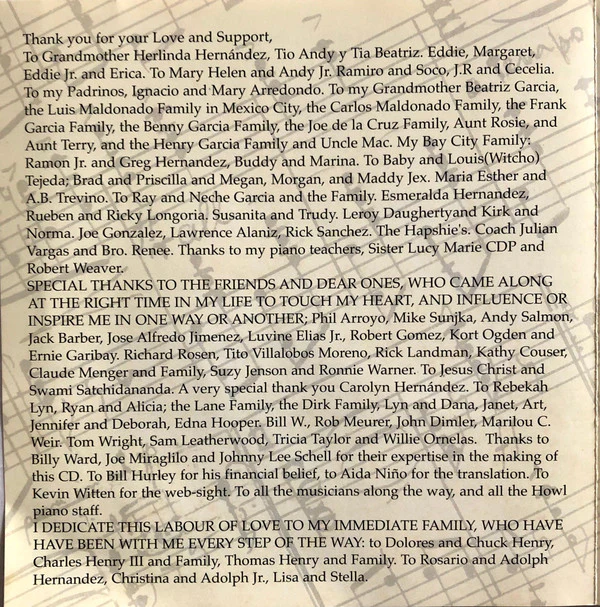 Thank you for your Love and Support,
To Grandmother Herlinda Hernández, Tio Andy y Tia Beatriz. Eddie, Margaret,
Eddie Jr. and Erica. To Mary Helen and Andy Jr. Ramiro and Soco, J.R and Cecelia.
To my Padrinos, Ignacio and Mary Arredondo. To my Grandmother Beatriz Garcia,
the Luis Maldonado Family in Mexico City, the Carlos Maldonado Family, the Frank
Garcia Family, the Benny Garcia Family, the Joe de la Cruz Family, Aunt Rosie, and
Aunt Terry, and the Henry Garcia Family and Uncle Mac. My Bay City Family:
Ramon Jr. and Greg Hernandez, Buddy and Marina. To Baby and Louis(Witcho)
Tejeda; Brad and Priscilla and Megan, Morgan, and Maddy Jex. Maria Esther and
A.B. Trevino. To Ray and Neche Garcia and the Family. Esmeralda Hernandez,
Rueben and Ricky Longoria. Susanita and Trudy. Leroy Daughertyand Kirk and
Norma. Joe Gonzalez, Lawrence Alaniz, Rick Sanchez. The Hapshie's. Coach Julian
Vargas and Bro. Renee. Thanks to my piano teachers, Sister Lucy Marie CDP and
Robert Weaver.
SPECIAL THANKS TO THE FRIENDS AND DEAR ONES, WHO CAME ALONG
AT THE RIGHT TIME IN MY LIFE TO TOUCH MY HEART, AND INFLUENCE OR
INSPIRE ME IN ONE WAY OR ANOTHER; Phil Arroyo, Mike Sunjka, Andy Salmon,
Jack Barber, Jose Alfredo Jimenez, Luvine Elias Jr., Robert Gomez, Kort Ogden and
Ernie Garibay. Richard Rosen, Tito Villalobos Moreno, Rick Landman, Kathy Couser,
Claude Menger and Family, Suzy Jenson and Ronnie Warner. To Jesus Christ and
Swami Satchidananda. A very special thank you Carolyn Hernández. To Rebekah
Lyn, Ryan and Alicia; the Lane Family, the Dirk Family, Lyn and Dana, Janet, Art,
Jennifer and Deborah, Edna Hooper. Bill W., Rob Meurer, John Dimler, Marilou C.
Weir. Tom Wright, Sam Leatherwood, Tricia Taylor and Willie Ornelas. Thanks to
Billy Ward, Joe Miraglilo and Johnny Lee Schell for their expertise in the making of
this CD. To Bill Hurley for his financial belief, to Aida Niño for the translation. To
Kevin Witten for the web-sight. To all the musicians along the way, and all the Howl
piano staff.
I DEDICATE THIS LABOUR OF LOVE TO MY IMMEDIATE FAMILY, WHO HAVE
HAVE BEEN WITH ME EVERY STEP OF THE WAY: to Dolores and Chuck Henry,
Charles Henry III and Family, Thomas Henry and Family. To Rosario and Adolph
Hernandez, Christina and Adolph Jr., Lisa and Stella.